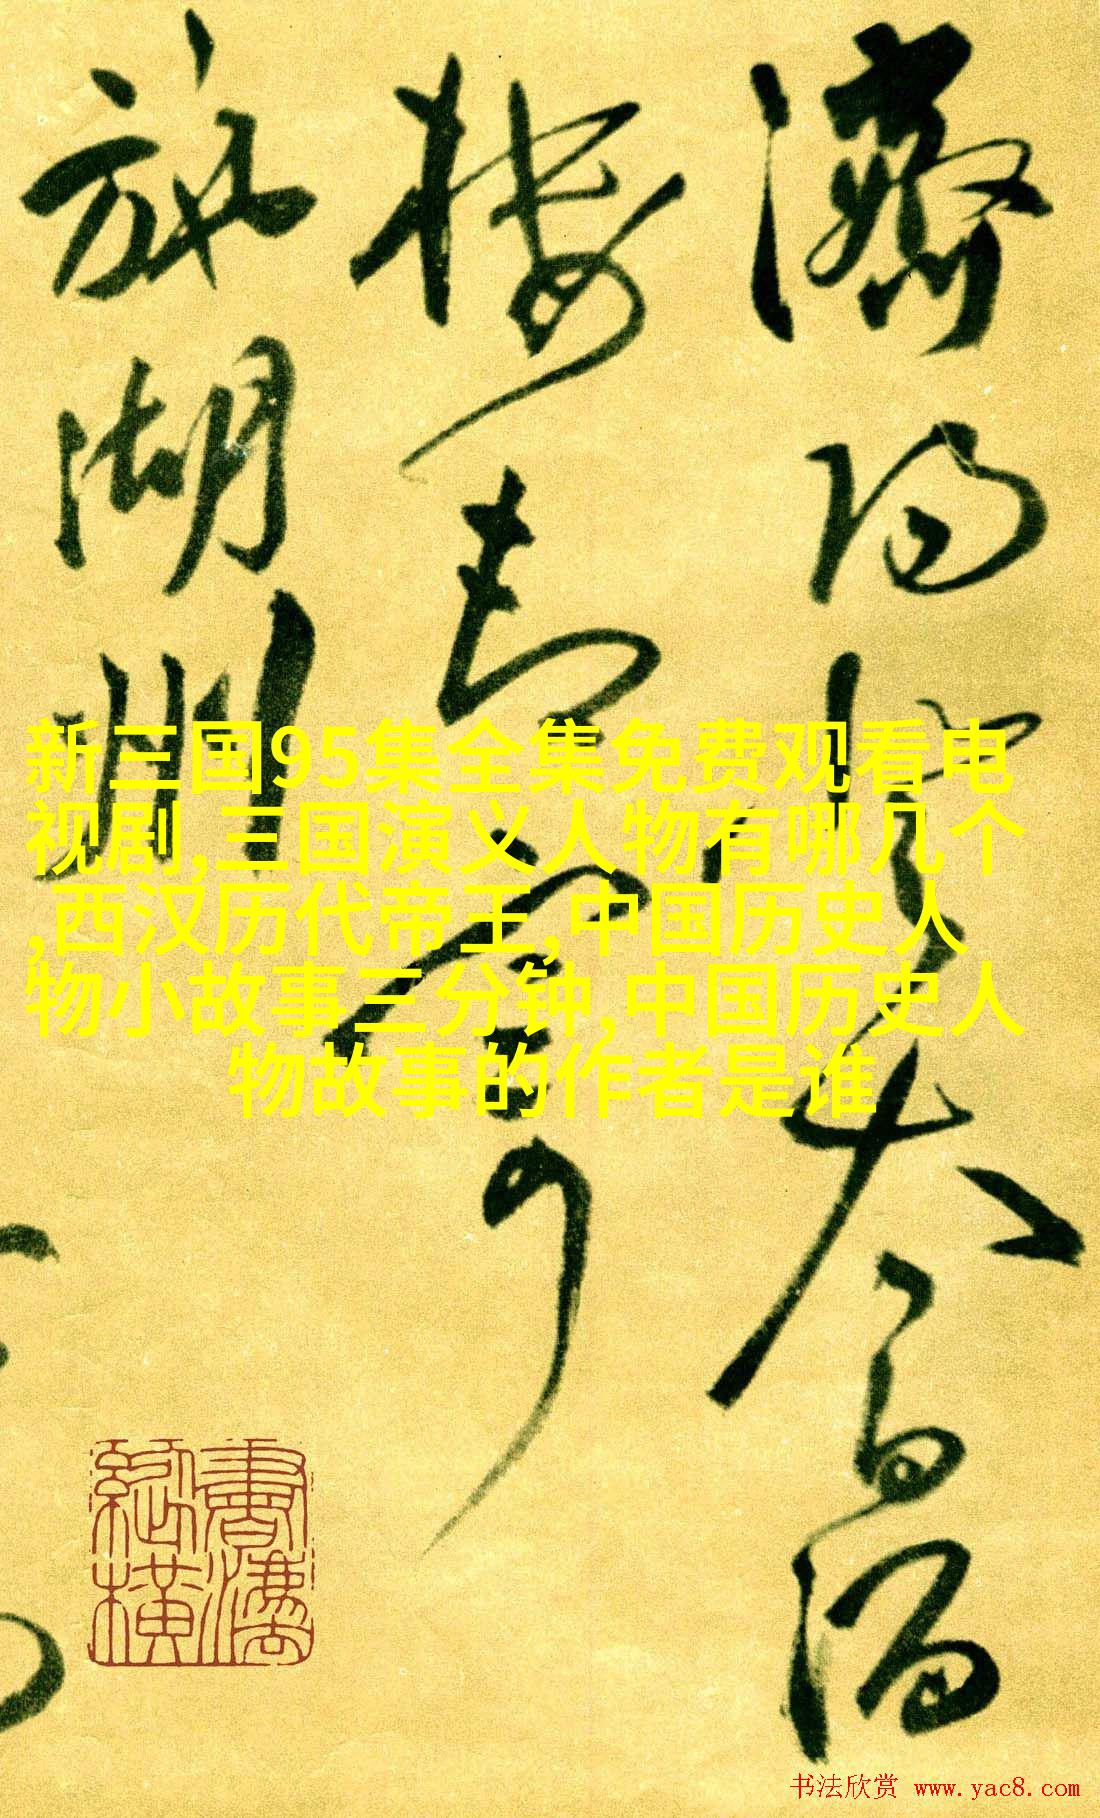 濟陽登太白酒
樓却寄
施湖州
新三国95集全集免费观看电
视剧,三国演义人物有哪几个
,西汉历代帝王,中国历史人
物小故事三分钟,中国历史人
物故事的作者是谁
书法欣赏 www.yac8.com